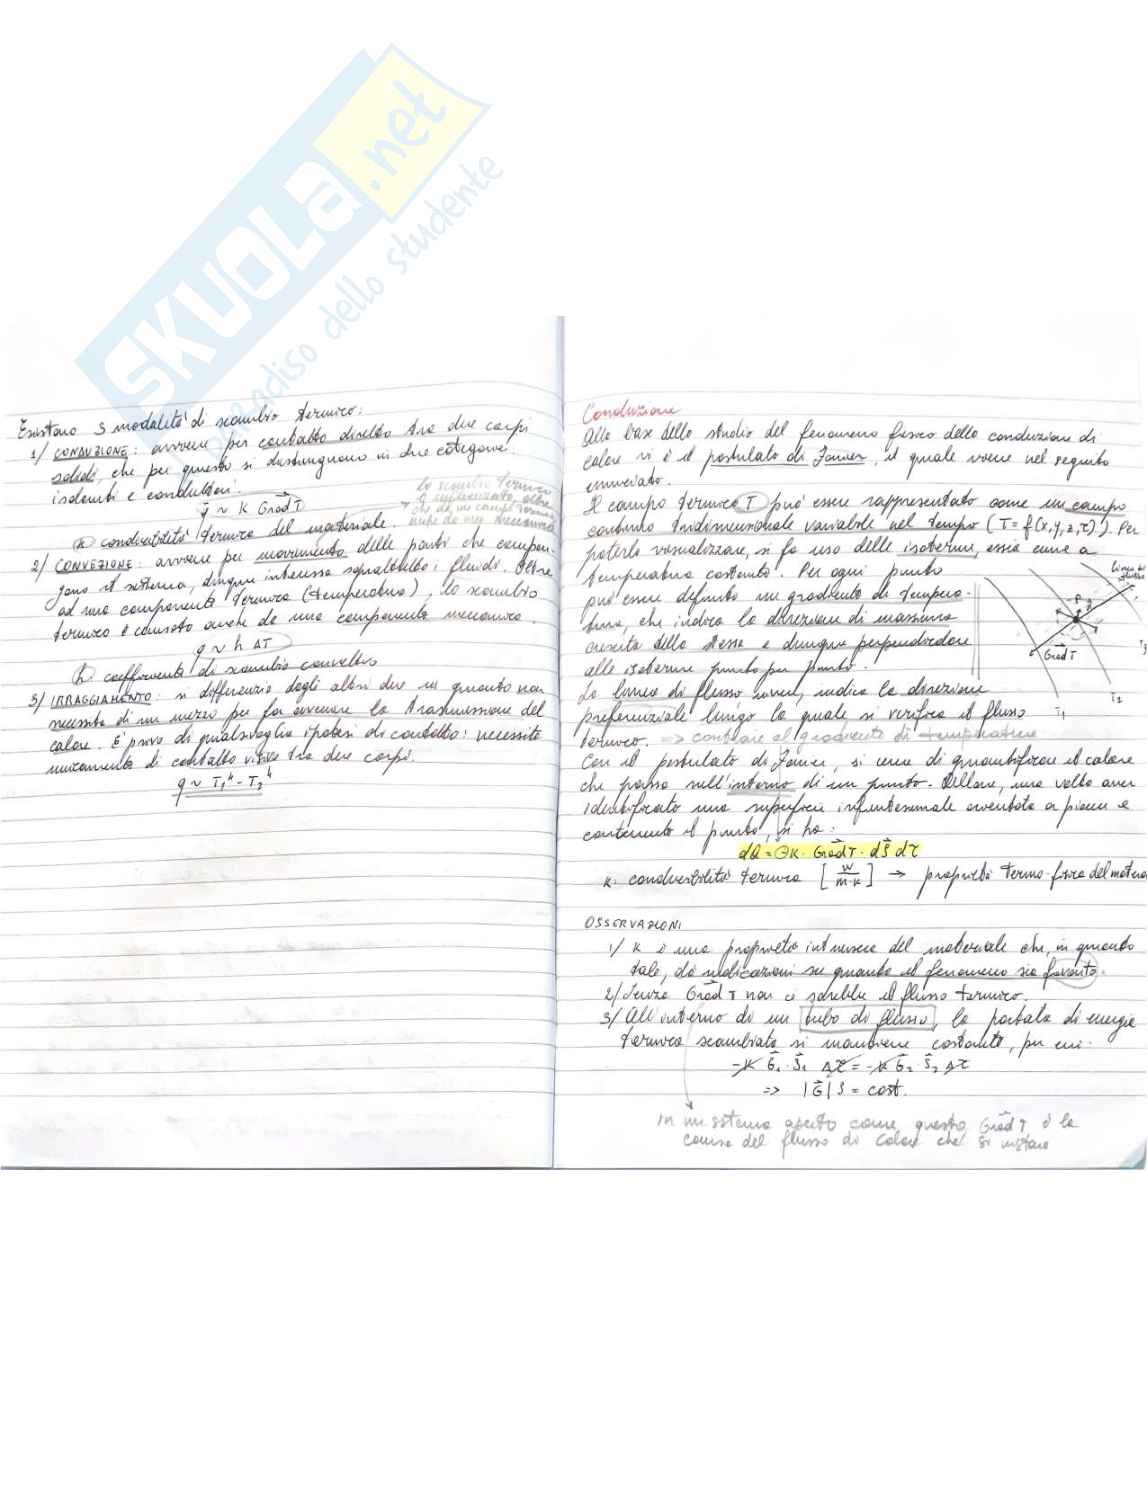 SKUOLA.net
paradiso dello studente
Esistono 3 modalità di scambio termico:
1/ CONDUZIONE: avviene per contatto diretto tra due corpi
solidi, che per questo si distinguono in due categorie:
isolanti e conduttori.
q ~ K Grad T
lo scambio termico
è influenzato, oltre
che da un campo termico
anche da uno meccanico
K conducibilità termica del materiale.
2/ CONVEZIONE: avviene per movimento delle parti che compon-
gono il sistema, dunque interessa soprattutto i fluidi. Oltre
ad una componente termica (temperatura), lo scambio
termico è causato anche da una componente meccanica.
q ~ h ΔT
h coefficiente di scambio convettivo
3/ IRRAGGIAMENTO: si differenzia dagli altri due in quanto non
necessita di un mezzo per far avvenire la trasmissione del
calore. È privo di qualsivoglia ipotesi di contatto: necessita
unicamente di contatto visivo tra due corpi.
q ~ T₁⁴ - T₂⁴
Conduzione
Alla base dello studio del fenomeno fisico della conduzione di
calore vi è il postulato di Fourier, il quale viene nel seguito
enunciato.
Il campo termico T può essere rappresentato come un campo
continuo tridimensionale variabile nel tempo (T = f(x,y,z,τ)). Per
poterlo visualizzare, si fa uso delle isoterme, ossia curve a
temperatura costante. Per ogni punto
può essere definito un gradiente di tempera-
tura, che indica la direzione di massima
crescita della stessa e dunque perpendicolare
alle isoterme punto per punto.
Linea di
flusso
P
Grad T
T₁
T₂
T₃
La linea di flusso invece, indica la direzione
preferenziale lungo la quale si verifica il flusso
termico. => contrare al gradiente di temperature
Con il postulato di Fourier, si cerca di quantificare il calore
che passa nell'intorno di un punto. Allora, una volta aver
identificato una superficie infinitesimale orientata a piacere e
contenente il punto, si ha:
dQ = -K · Grad T · dS dτ
K: conducibilità termica [W/m·K] → proprietà termo-fisica del materia
OSSERVAZIONI
1/ K è una proprietà intrinseca del materiale che, in quanto
tale, dà indicazioni su quanto il fenomeno sia favorito.
2/ Senza Grad T non ci sarebbe il flusso termico.
3/ All'interno di un tubo di flusso, la portata di energia
termica scambiata si mantiene costante, per cui:
-K G₁ · S₁ Δτ = -K G₂ · S₂ Δτ
=> |G| S = cost.
In un sistema aperto come questo, Grad T è la
causa del flusso di calore che si instaura